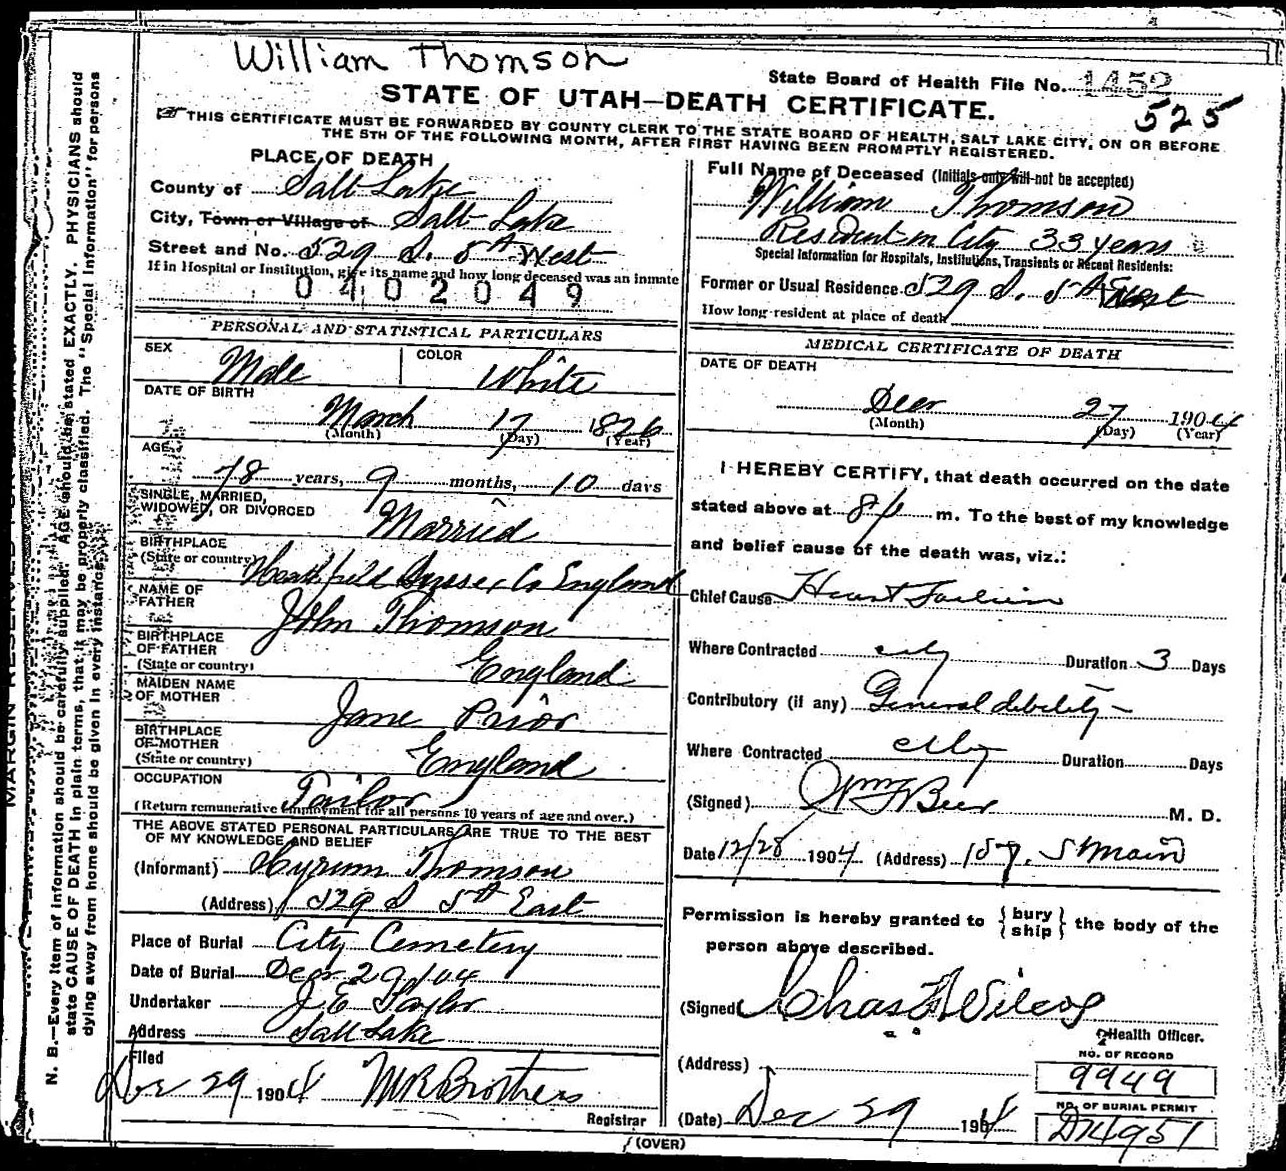 William Thomson
State Board of Health File No. 1452
525
STATE OF UTAH—DEATH CERTIFICATE.
THIS CERTIFICATE MUST BE FORWARDED BY COUNTY CLERK TO THE STATE BOARD OF HEALTH, SALT LAKE CITY, ON OR BEFORE
THE 5TH OF THE FOLLOWING MONTH, AFTER FIRST HAVING BEEN PROMPTLY REGISTERED.
PLACE OF DEATH
County of Salt Lake
City, Town or Village of Salt Lake
Street and No. 529 S. 5th West
If in Hospital or Institution, give its name and how long deceased was an inmate
0402049
Full Name of Deceased (Initials only will not be accepted)
William Thomson
Resident in City 33 years
Special Information for Hospitals, Institutions, Transients or Recent Residents:
Former or Usual Residence 529 S. 5th West
How long resident at place of death
PERSONAL AND STATISTICAL PARTICULARS
SEX Male COLOR White
DATE OF BIRTH March 17 1826
(Month) (Day) (Year)
AGE 78 years, 9 months, 10 days
SINGLE, MARRIED,
WIDOWED, OR DIVORCED Married
BIRTHPLACE
(State or country) Heathfield Sussex Co England
NAME OF
FATHER John Thomson
BIRTHPLACE
OF FATHER
(State or country) England
MAIDEN NAME
OF MOTHER Jane Prior
BIRTHPLACE
OF MOTHER
(State or country) England
OCCUPATION Tailor
(Return remunerative employment for all persons 10 years of age and over.)
THE ABOVE STATED PERSONAL PARTICULARS ARE TRUE TO THE BEST
OF MY KNOWLEDGE AND BELIEF
(Informant) Hyrum Thomson
(Address) 529 S 5th East
Place of Burial City Cemetery
Date of Burial Decr 29/04
Undertaker J E Taylor
Address Salt Lake
Filed
Dec 29 1904 Brothers
Registrar
MEDICAL CERTIFICATE OF DEATH
DATE OF DEATH
Decr 27 1904
(Month) (Day) (Year)
I HEREBY CERTIFY, that death occurred on the date
stated above at 8 m. To the best of my knowledge
and belief cause of the death was, viz.:
Chief Cause Heart Failure
Where Contracted city Duration 3 Days
Contributory (if any) General debility
Where Contracted city Duration Days
(Signed) Wm F Beer M. D.
Date 12/28 1904 (Address) 157. S Main
Permission is hereby granted to {bury
ship} the body of the
person above described.
(Signed) Chas F Wilcox
Health Officer.
(Address)
NO. OF RECORD
9949
(Date) Dec 29 1904
NO. OF BURIAL PERMIT
D14951
(OVER)
MARGIN RESERVED FOR
N. B.—Every item of information should be carefully supplied. AGE should be stated EXACTLY. PHYSICIANS should
state CAUSE OF DEATH in plain terms, that it may be properly classified. The "Special Information" for persons
dying away from home should be given in every instance.